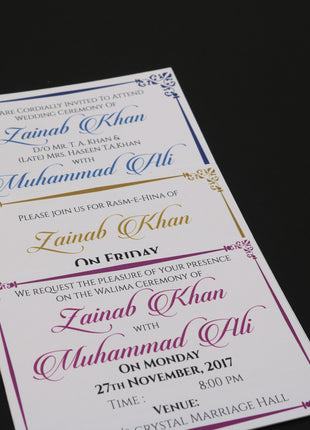 ARE CORDIALLY INVITED TO ATTEND
WEDDING CEREMONY OF
Zainab Khan
D/O MR. T. A. KHAN &
(LATE) MRS. HASEEN T.A.KHAN
WITH
Muhammad Ali
PLEASE JOIN US FOR RASM-E-HINA OF
Zainab Khan
ON FRIDAY
WE REQUEST THE PLEASURE OF YOUR PRESENCE
ON THE WALIMA CEREMONY OF
Zainab Khan
WITH
Muhammad Ali
ON MONDAY
27TH NOVEMBER, 2017
TIME : 8:00 PM
VENUE:
CRYSTAL MARRIAGE HALL